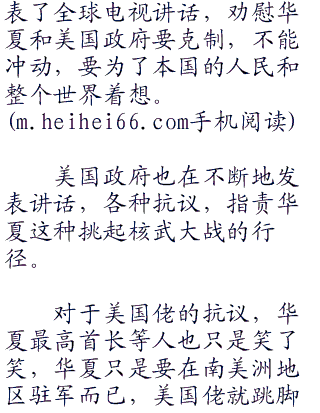 表了全球电视讲话，劝慰华
夏和美国政府要克制，不能
冲动，要为了本国的人民和
整个世界着想。
(m.heihei66.com手机阅读)
美国政府也在不断地发
表讲话，各种抗议，指责华
夏这种挑起核武大战的行
径。
对于美国佬的抗议，华
夏最高首长等人也只是笑了
笑，华夏只是要在南美洲地
区驻军而已，美国佬就跳脚